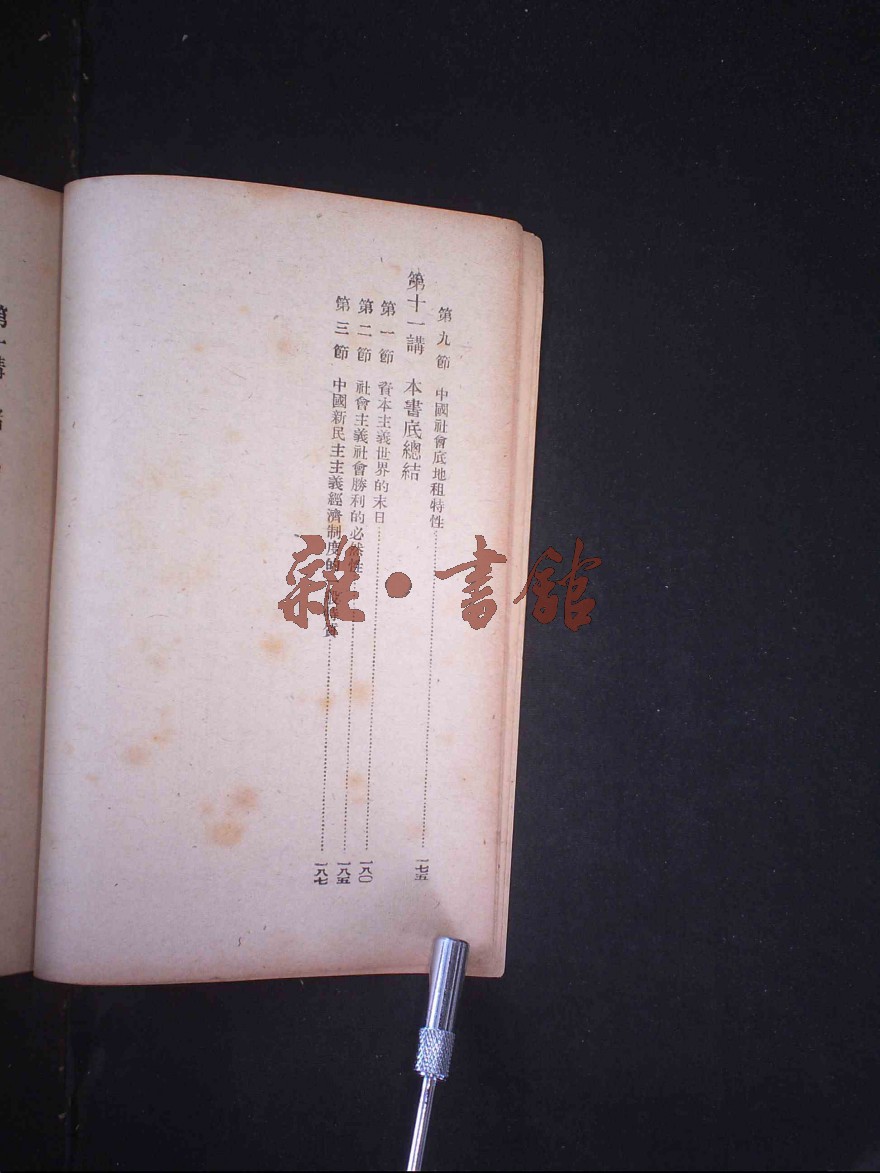 第九節 中國社會底地租特性 一七五
第十一講 本書底總結
第一節 資本主義世界的末日 一八〇
第二節 社會主義社會勝利的必然性 一八五
第三節 中國新民主主義經濟制度的 質 一八七
第一講
雜·書館